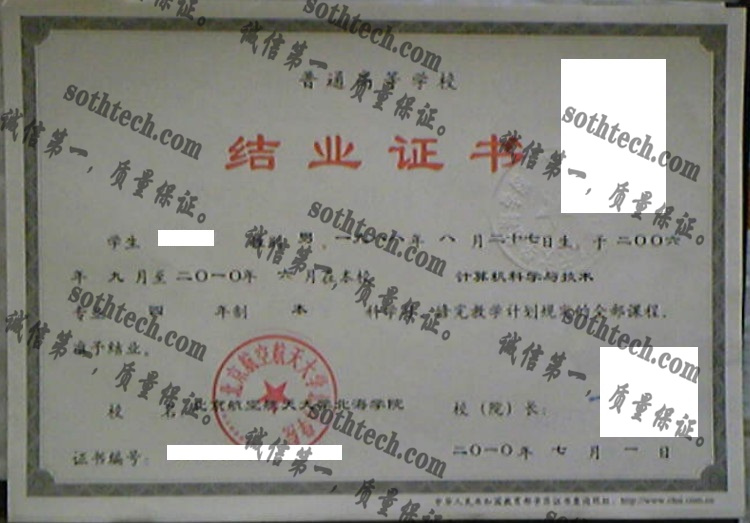 普通高等学校
结业证书
学生 性别 男，一九八 年 八 月 二十七日生，于 二〇〇六
年 九 月至 二〇一〇年 六 月在本校 计算机科学与技术
专业 四 年制 本 科 修完教学计划规定的全部课程，
准予结业。
校 名：北京航空航天大学北海学院 校（院）长：
证书编号： 二〇一〇年 七 月 一 日
中华人民共和国教育部学历证书查询网址：http://www.chsi.com.cn
北京航空航天大学北海学院
sothtech.com
诚信第一，质量保证。
sothtech.com
诚信第一，质量保证。
sothtech.com
诚信第一，质量保证。
sothtech.com
诚信第一，质量保证。
sothtech.com
诚信第一，质量保证。
sothtech.com
诚信第一，质量保证。
sothtech.com
诚信第一，质量保证。
sothtech.com
诚信第一，质量保证。